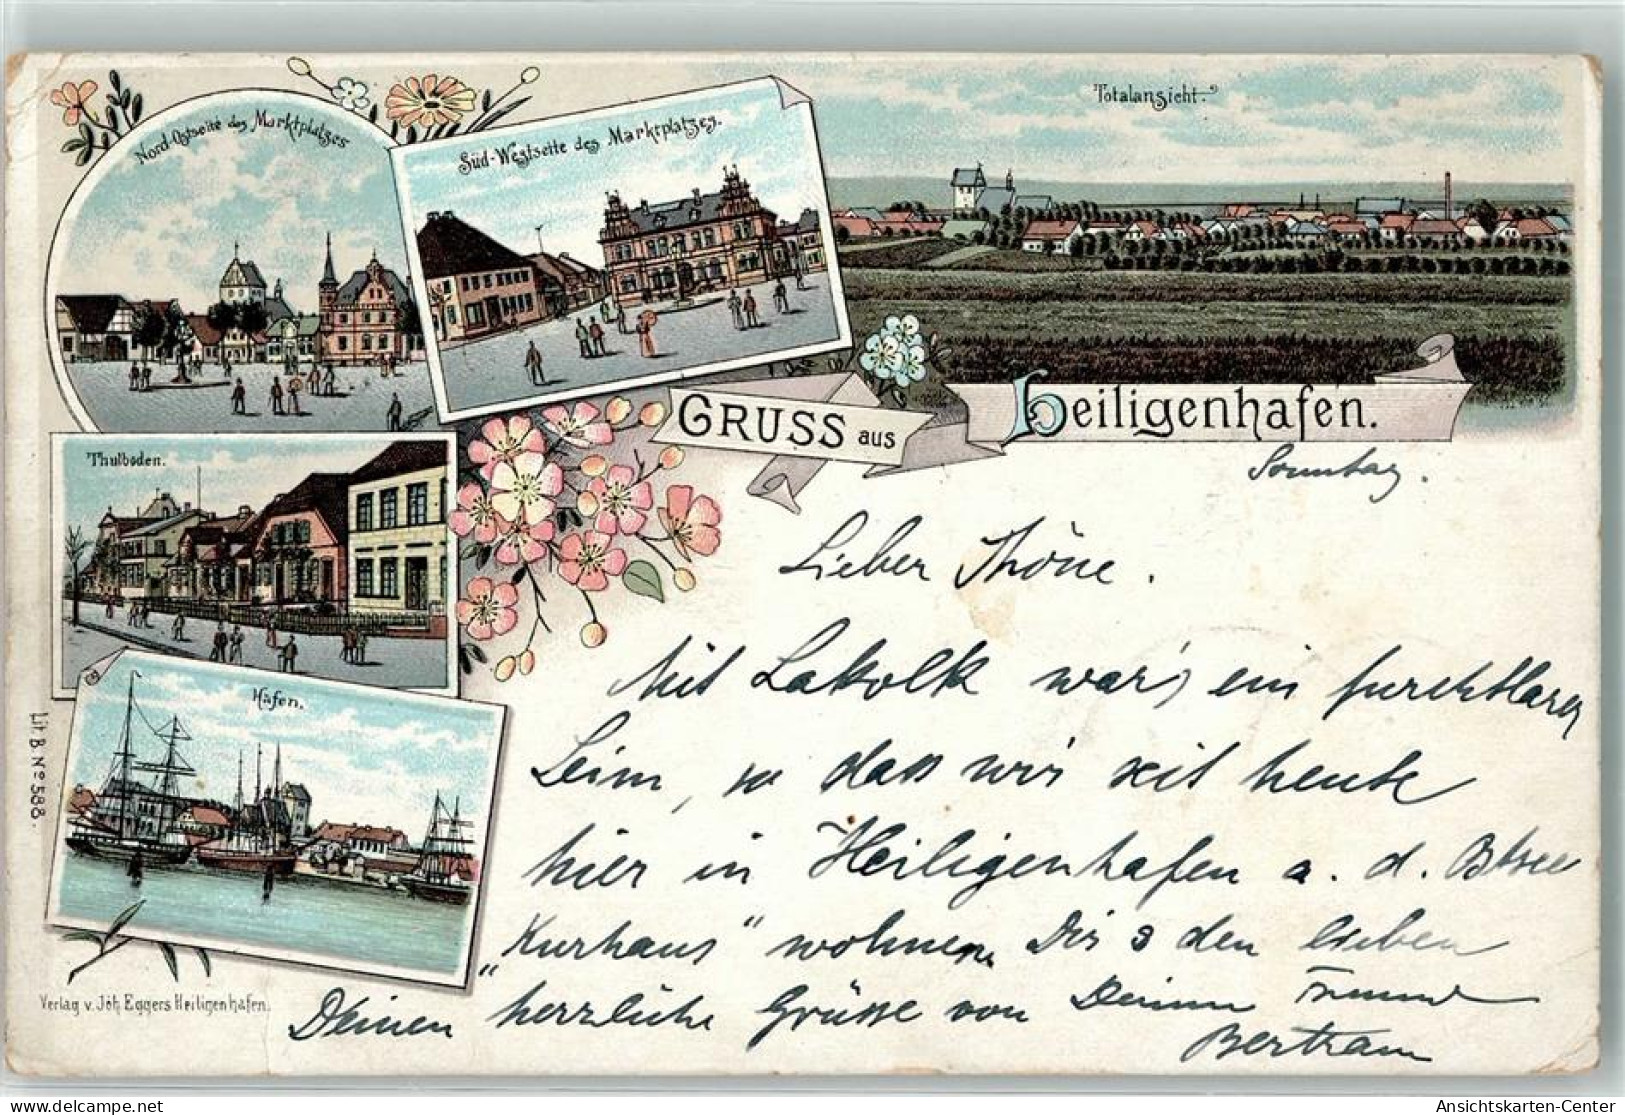 Nord-Ostseite des Marktplatzes
Süd-Westseite des Marktplatzes.
Totalansicht.
GRUSS aus Heiligenhafen.
Thulboden.
Hafen.
Lit. B. No 588.
Verlag v. Joh. Eggers Heiligenhafen.
Sonntag.
Lieber Thöne.
Mit Lakolk war's ein furchtbarer
Leim, so dass wir seit heute
hier in Heiligenhafen a. d. Ostsee
"Kurhaus" wohnen. Dir & den lieben
Deinen herzliche Grüsse von Deinem Freund
Bertram
delcampe.net
Ansichtskarten-Center